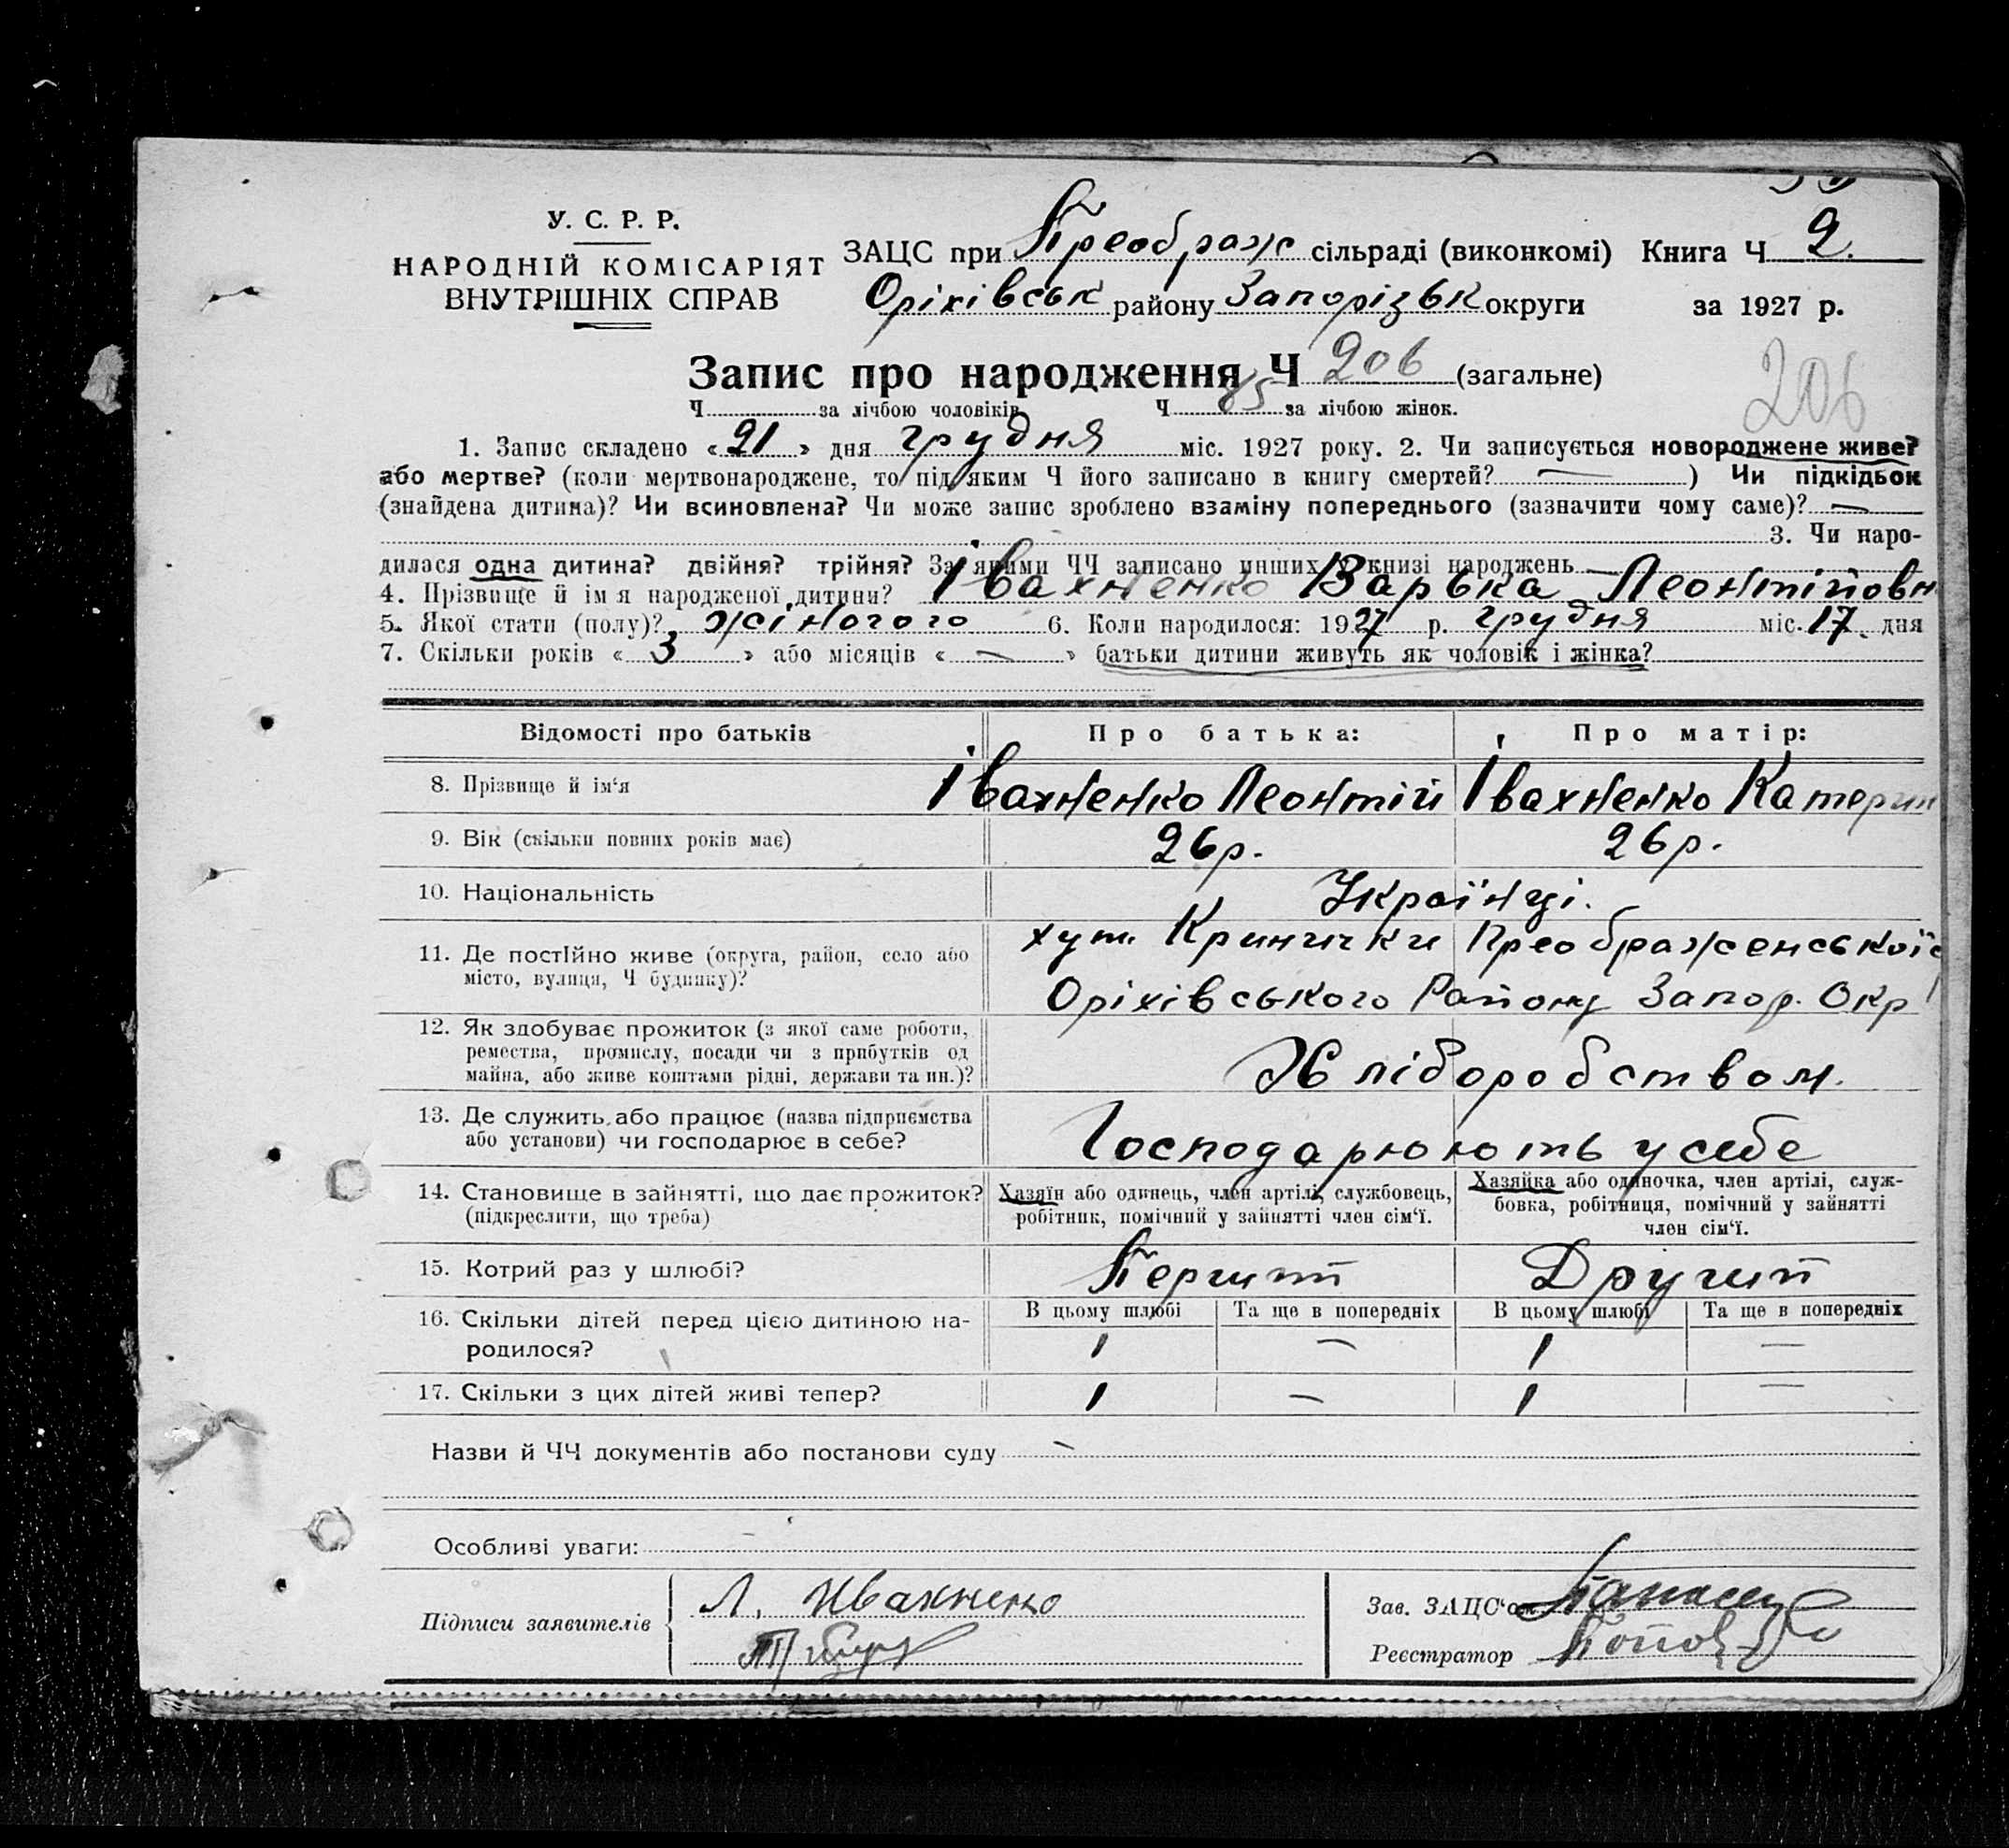 У. С. Р. Р.
НАРОДНІЙ КОМІСАРІЯТ
ВНУТРІШНІХ СПРАВ
ЗАЦС при Преображ сільраді (виконкомі) Книга Ч 2.
Оріхівськ району Запорізьк округи за 1927 р.
Запис про народження Ч 206 (загальне)
206
Ч за лічбою чоловіків Ч 85 за лічбою жінок.
1. Запис складено « 21 » дня грудня міс. 1927 року. 2. Чи записується новороджене живе?
або мертве? (коли мертвонароджене, то під яким Ч його записано в книгу смертей? — ) Чи підкідьок
(знайдена дитина)? Чи всиновлена? Чи може запис зроблено взаміну попереднього (зазначити чому саме)? —
3. Чи наро-
дилася одна дитина? двійня? трійня? За якими ЧЧ записано инших у книзі народжень —
4. Прізвище й імя народженої дитини? Івахненко Варька Леонтійовн
5. Якої стати (полу)? жіночого 6. Коли народилося: 1927 р. грудня міс. 17 дня
7. Скільки років « 3 » або місяців « — » батьки дитини живуть як чоловік і жінка?
Відомості про батьків Про батька: Про матір:
8. Прізвище й ім'я Івахненко Леонтій Івахненко Катерин
9. Вік (скільки повних років має) 26 р. 26 р.
10. Національність Українці.
11. Де постійно живе (округа, район, село або місто, вулиця, Ч будинку)? хут. Кринички Преображенської с
Оріхівського Району Запор. Окр
12. Як здобуває прожиток (з якої саме роботи,
ремества, промислу, посади чи з прибутків од
майна, або живе коштами рідні, держави та ин.)? Хліборобством.
13. Де служить або працює (назва підприємства
або установи) чи господарює в себе? Господарюють у себе
14. Становище в зайнятті, що дає прожиток?
(підкреслити, що треба)
Хазяїн або одинець, член артілі, службовець,
робітник, помічний у зайнятті член сім'ї.
Хазяйка або одиночка, член артілі, служ-
бовка, робітниця, помічний у зайнятті
член сім'ї.
15. Котрий раз у шлюбі? Перший Другий
16. Скільки дітей перед цією дитиною на-
родилося?
В цьому шлюбі Та ще в попередніх В цьому шлюбі Та ще в попередніх
1 — 1 —
17. Скільки з цих дітей живі тепер? 1 — 1 —
Назви й ЧЧ документів або постанови суду —
Особливі уваги:
Підписи заявителів Л. Ивахненко
Зав. ЗАЦС'ом
Реєстратор